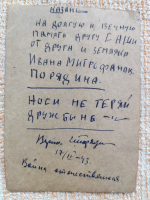 Казань
на долгую и вечную
память другу Саши
от друга и земляка
Ивана Митрофанов.
Порядина.
Носи не теряй
дружбы не —
17/IX-43.
Война отечественная